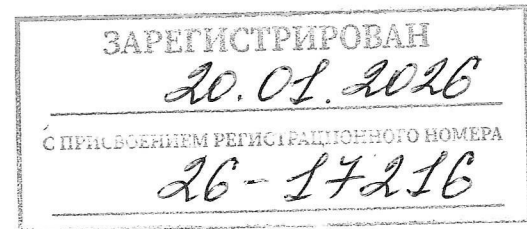 ЗАРЕГИСТРИРОВАН
20.01.2026
С ПРИСВОЕНИЕМ РЕГИСТРАЦИОННОГО НОМЕРА
26-17216